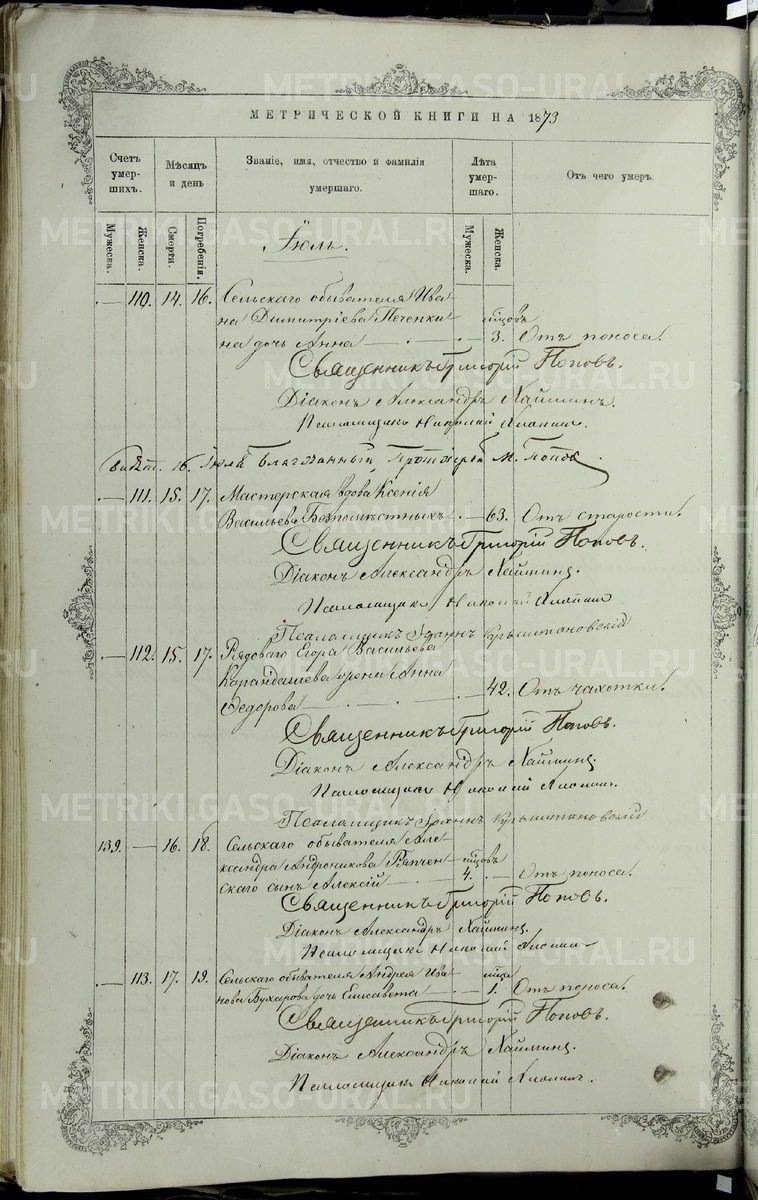 МЕТРИЧЕСКОЙ КНИГИ НА 1873
Счетъ умершихъ.
Мѣсяцъ и день
Званіе, имя, отчество и фамилія умершаго.
Лѣта умершаго.
Отъ чего умеръ.
Мужеска.
Женска.
Смерти.
Погребенія.
Мужеска.
Женска.
Іюль.
— 110. 14. 16. Сельскаго обывателя Ива
на Димитріева Печенки мѣсцовъ
на дочь Анна — 3. Отъ поноса.
Священникъ Григорій Поповъ.
Діаконъ Александръ Хайминъ.
Псаломщикъ Николай
16. Іюля Благочинный, Протоіерей М. Поповъ
— 111. 15. 17. Мастерская вдова Ксенія
Васильева Безпомѣстныхъ — 63. Отъ старости.
Священникъ Григорій Поповъ.
Діаконъ Александръ Хайминъ.
Псаломщикъ Николай
Псаломщикъ Іоаннъ
— 112. 15. 17. Рядоваго Егора Васильева
Карандашева жена Анна
Ѳедорова — 42. Отъ чахотки.
Священникъ Григорій Поповъ.
Діаконъ Александръ Хайминъ.
Псаломщикъ Николай
Псаломщикъ Іоаннъ
139. — 16. 18. Сельскаго обывателя Але
ксандра Андроникова мѣсцовъ
скаго сынъ Алексій — 4. — Отъ поноса.
Священникъ Григорій Поповъ.
Діаконъ Александръ Хайминъ.
Псаломщикъ Николай
— 113. 17. 19. Сельскаго обывателя Андрея Ива мѣсца
нова Бухарова дочь Елисавета — 1. Отъ поноса.
Священникъ Григорій Поповъ.
Діаконъ Александръ Хайминъ.
Псаломщикъ Николай
METRIKI.GASO-URAL.RU